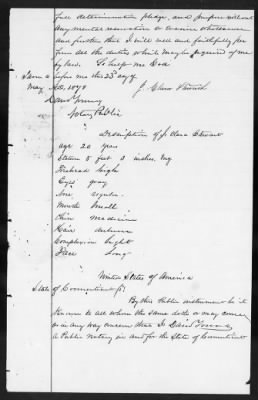 full determination, pledge, and purpose without
any mental reservation or evasion whatsoever
and further that I will well and faithfully per
form all the duties which may be required of me
by law. So help me God
Sworn
before me this 23 day of
May A.D. 1878
J. Clara
David
Notary Public
Description of J. Clara
age 20 years
Stature 5 feet 3 inches, Eng
Forehead high
Eyes gray
Nose regular
Mouth Small
Chin medium
Hair auburn
Complexion light
Face long
United States of America
State of Connecticut
By this Public instrument be it
Known to all whom the same doth or may concern
or in any way concern that I David
a Public Notary in and for the State of Connecticut